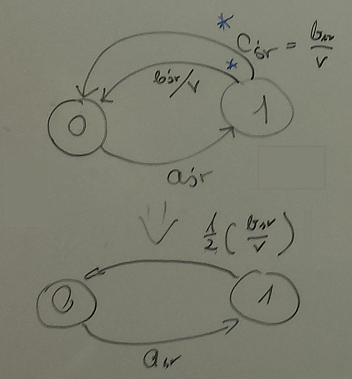 *
C_{sr} = \frac{b_{sr}}{v}
*
b_{sr}/v
0
1
a_{sr}
\frac{1}{2} ( \frac{b_{sr}}{v} )
0
1
a_{sr}